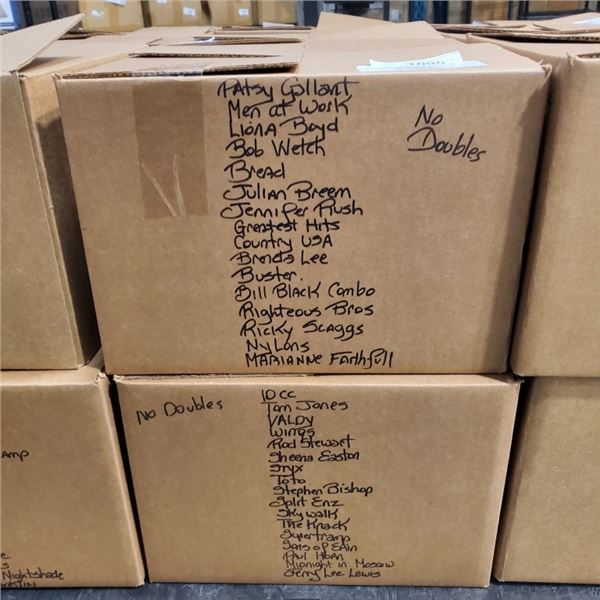 Patsy Gallant
Men at Work
Liona Boyd
Bob Welch
Bread
Julian Breem
Jennifer Rush
Greatest Hits
Country USA
Brenda Lee
Buster.
Bill Black Combo
Righteous Bros
Ricky Scaggs
Nylons
MARIANNE Faithfull
No
Doubles
No Doubles
10cc
Tom Jones
VALDY
WINGS
Rod Stewart
Sheena Easton
Styx
Toto
Stephen Bishop
Split Enz
Skywalk
The Knack
Supertramp
Paul Horn
Midnight in Moscow
Jerry Lee Lewis
AMP
Nightshade